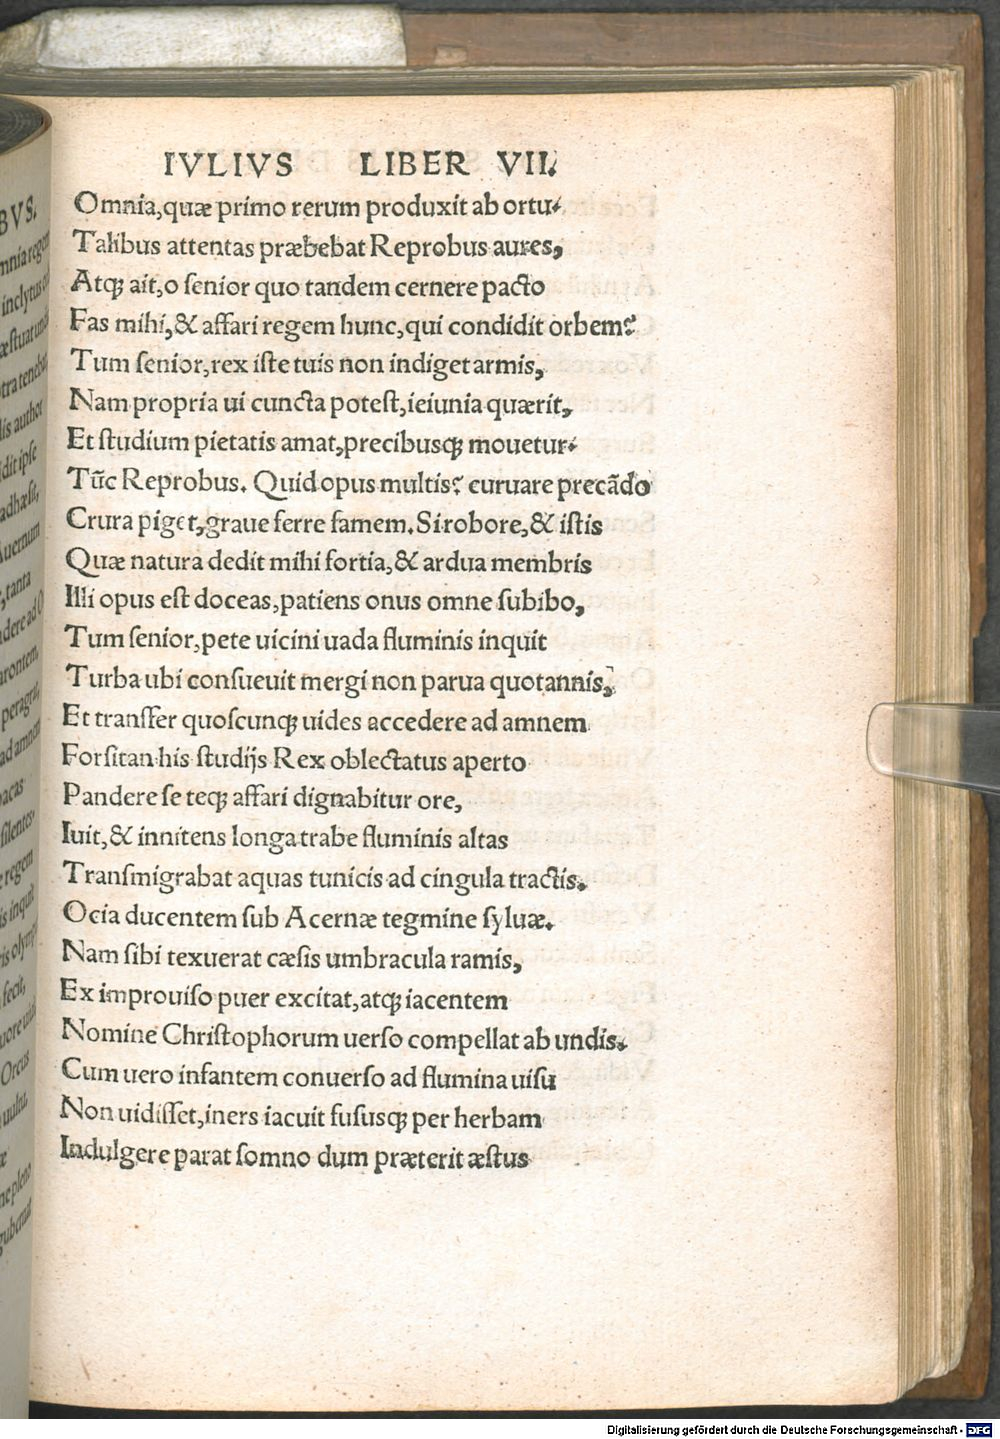 IVLIVS LIBER VII.
Omnia,quæ primo rerum produxit ab ortu.
Talibus attentas præbebat Reprobus aures,
Atqꝫ ait,o ſenior quo tandem cernere pacto
Fas mihi,& affari regem hunc,qui condidit orbem?
Tum ſenior,rex iſte tuis non indiget armis,
Nam propria ui cuncta poteſt,ieiunia quærit,
Et ſtudium pietatis amat,precibusqꝫ mouetur.
Tūc Reprobus. Quid opus multis? curuare precādo
Crura piget,graue ferre famem.Si robore,& iſtis
Quæ natura dedit mihi fortia,& ardua membris
Illi opus eſt doceas,patiens onus omne ſubibo,
Tum ſenior,pete uicini uada fluminis inquit
Turba ubi conſueuit mergi non parua quotannis,
Et tranſfer quoſcunqꝫ uides accedere ad amnem
Forſitan his ſtudijs Rex oblectatus aperto
Pandere ſe teqꝫ affari dignabitur ore,
Iuit,& innitens longa trabe fluminis altas
Tranſmigrabat aquas tunicis ad cingula tractis.
Ocia ducentem ſub Acernæ tegmine ſyluæ.
Nam ſibi texuerat cæſis umbracula ramis,
Ex improuiſo puer excitat,atqꝫ iacentem
Nomine Chriſtophorum uerſo compellat ab undis.
Cum uero infantem conuerſo ad flumina uiſu
Non uidiſſet,iners iacuit fuſusqꝫ per herbam
Indulgere parat ſomno dum præterit æſtus
BVS.
mnia regem
inclytus
æſtuat
tra teneba
lis author
dit ipſe
adhæſit,
Auernum
,tanta
dere ad O
arontem,
peragrat,
ad amnem
pacas
ſilentes,
e regem
is inquit
ris olymp
fecit,
uore
Orcus
uultu,
æ
ne pleno
gubernat
Digitalisierung gefördert durch die Deutsche Forschungsgemeinschaft - DFG